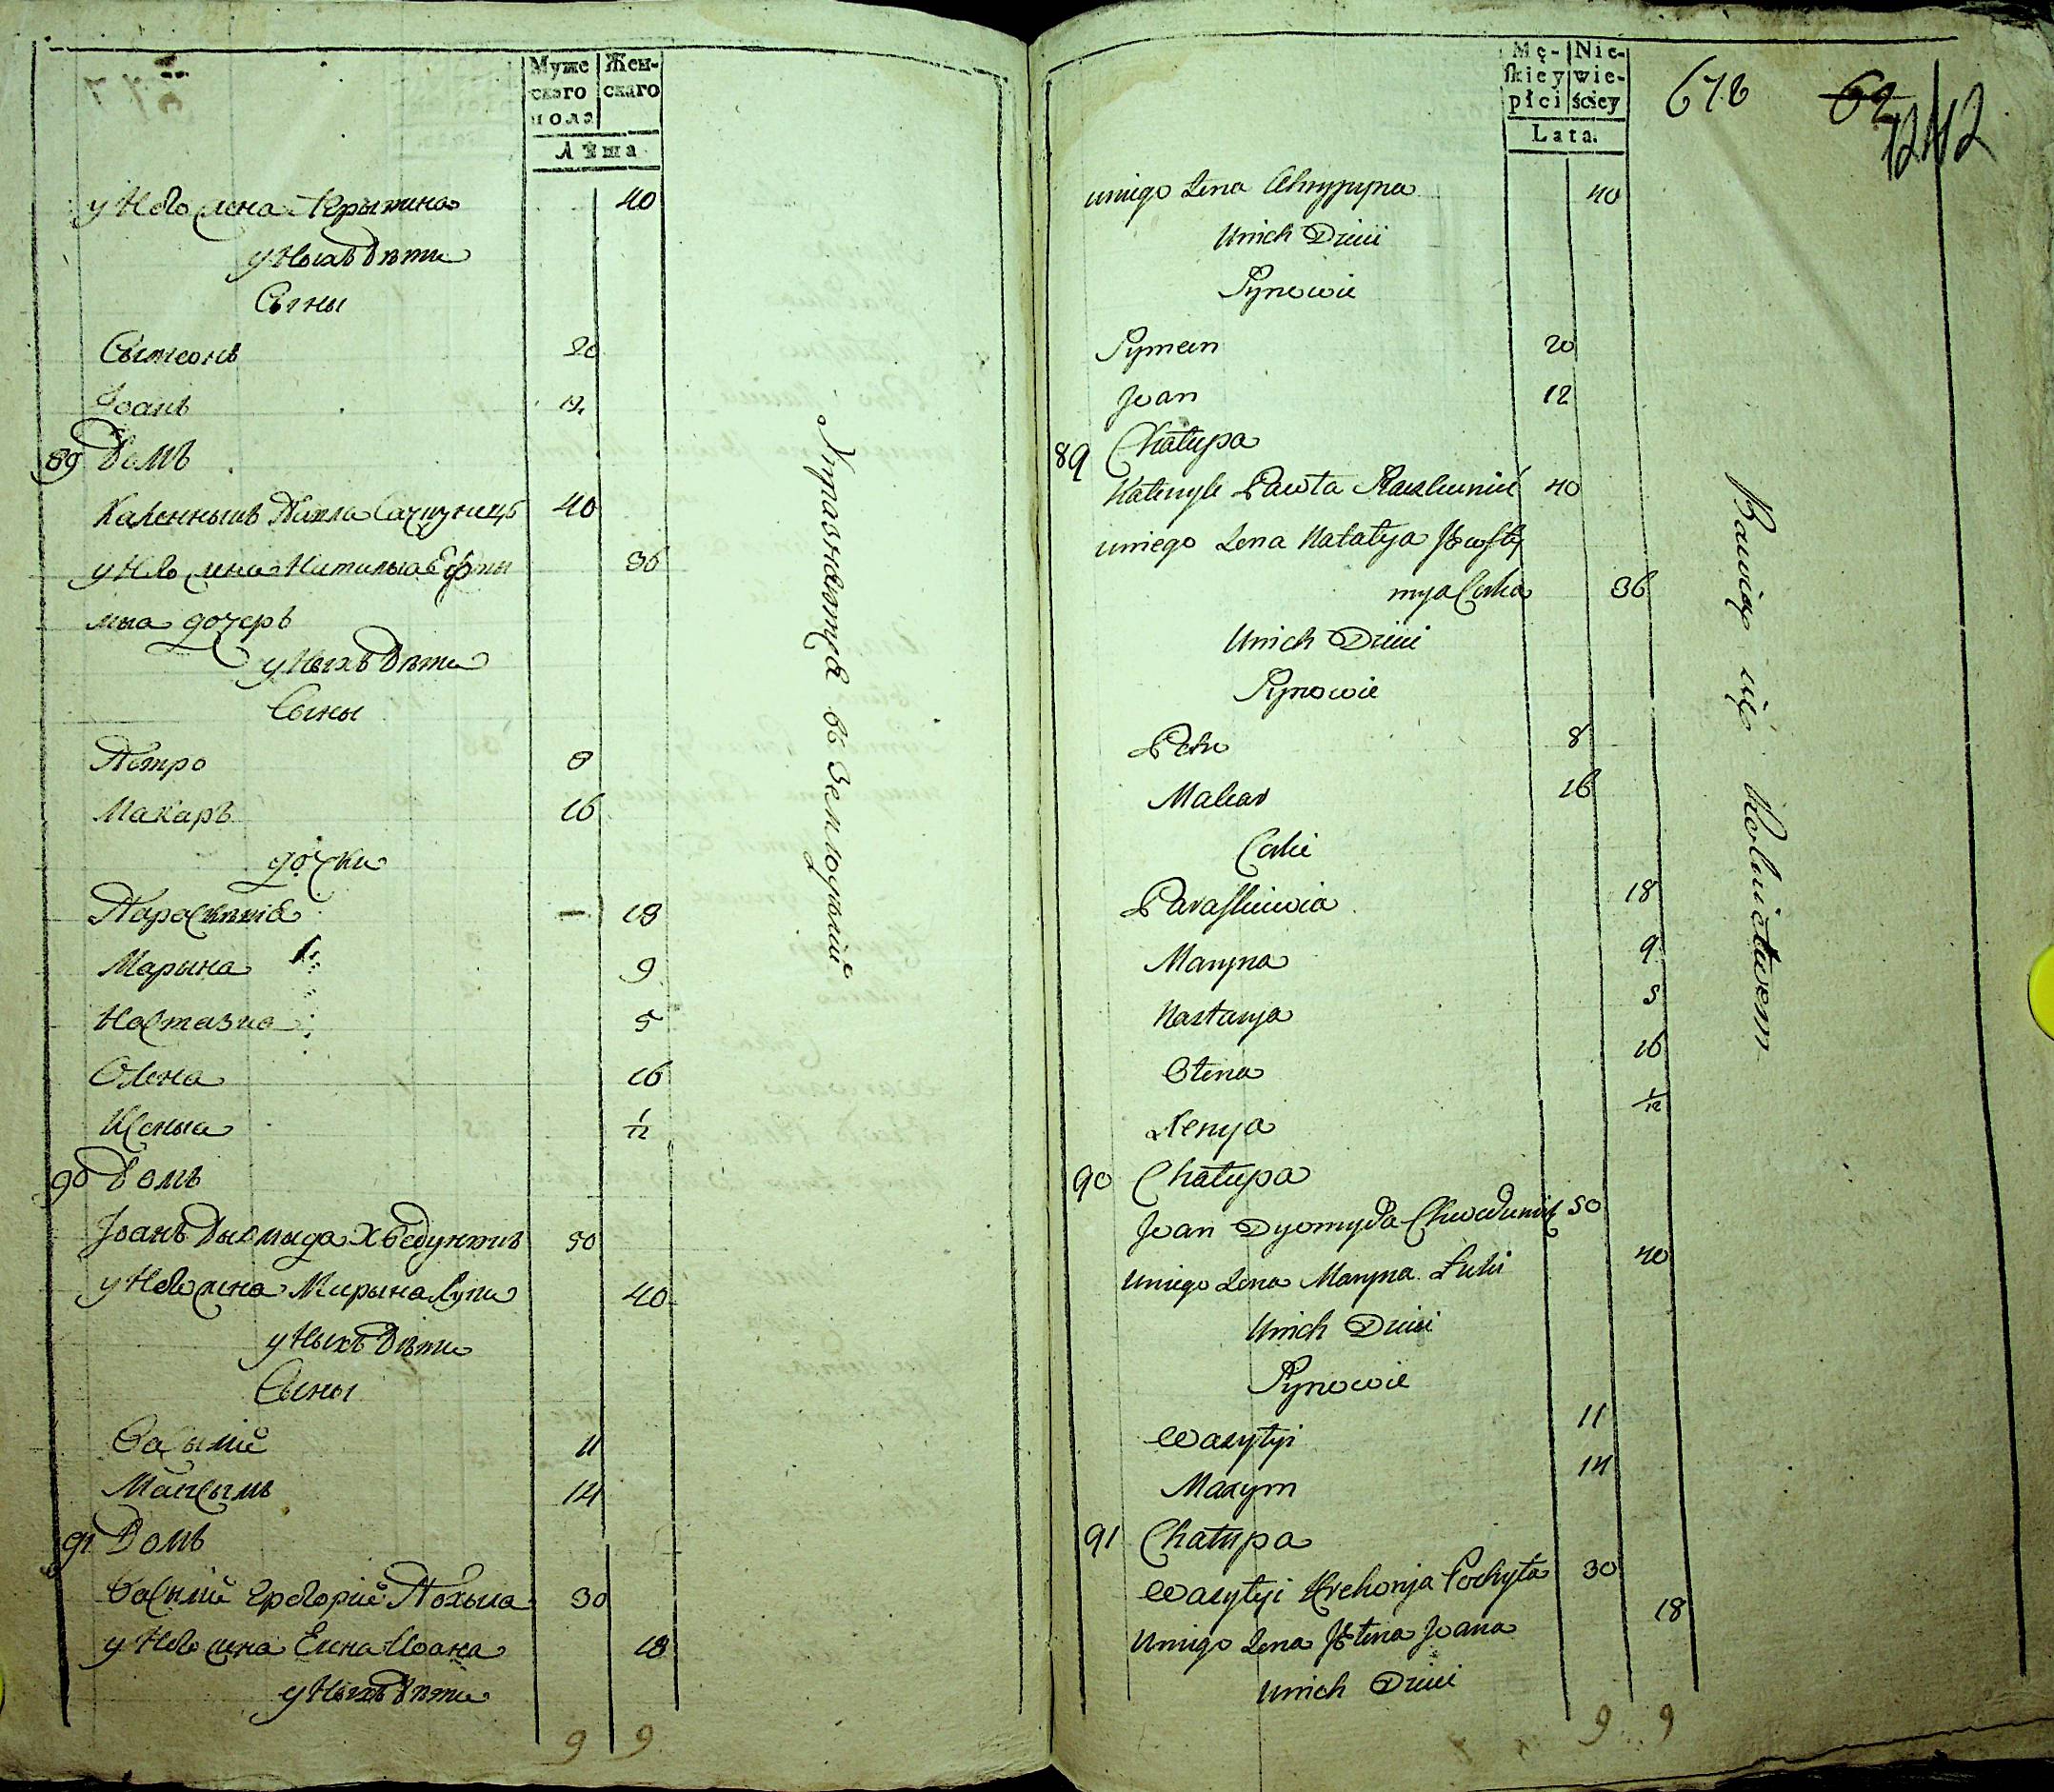 Муже
скаго
пола
Жен-
скаго
Лѣта
у Него жена Крыстина 40
у Ныхъ дѣти
Сыны
Сымеонъ 20
Іоанъ 12
89 Домъ
Каленныкъ Павла 40
у Него жена Наталыа Ефты 36
мыа дочерь
у Ныхъ дѣти
Сыны
Петро 8
Макаръ 16
дочки
Параскевіа 18
Марына 9
Настазиа 5
Олена 16
Ксеныа 1/12
90 Домъ
Іоанъ Дыомыда Хведунивъ 50
у Него жена Марына Луки 40
у Ныхъ дѣти
Сыны
Васылій 11
Максымъ 14
91 Домъ
Васылій Григорій Похыла 30
у Него жена Елена Иоана 18
у Ныхъ дѣти
9 9
Упражняются въ Земледѣліи
Mę-
skiey
płci
Nie-
wie-
ściey
Lata.
678
62
12
uniego Żena 40
Unich Dzieci
Synowie
Symeon 20
Joan 12
89 Chałupa
Kalenyk Pawła 40
uniego Żena Natalya Jewfty
mya Corka 36
Unich Dzieci
Synowie
Petro 8
Makar 16
Corki
Paraskiewia 18
Maryna 9
Nastazya 5
Ołena 16
Xenya 1/12
90 Chałupa
Joan Dyomyda Chweduniw 50
uniego Żena Maryna Łuki 40
Unich Dzieci
Synowie
Wasylyi 11
Maxym 14
91 Chałupa
Wasylyi Hrehorya Pochyła 30
Uniego Żena Jełena Joana 18
Unich Dzieci
9 9
Bawią się Rolnictwem